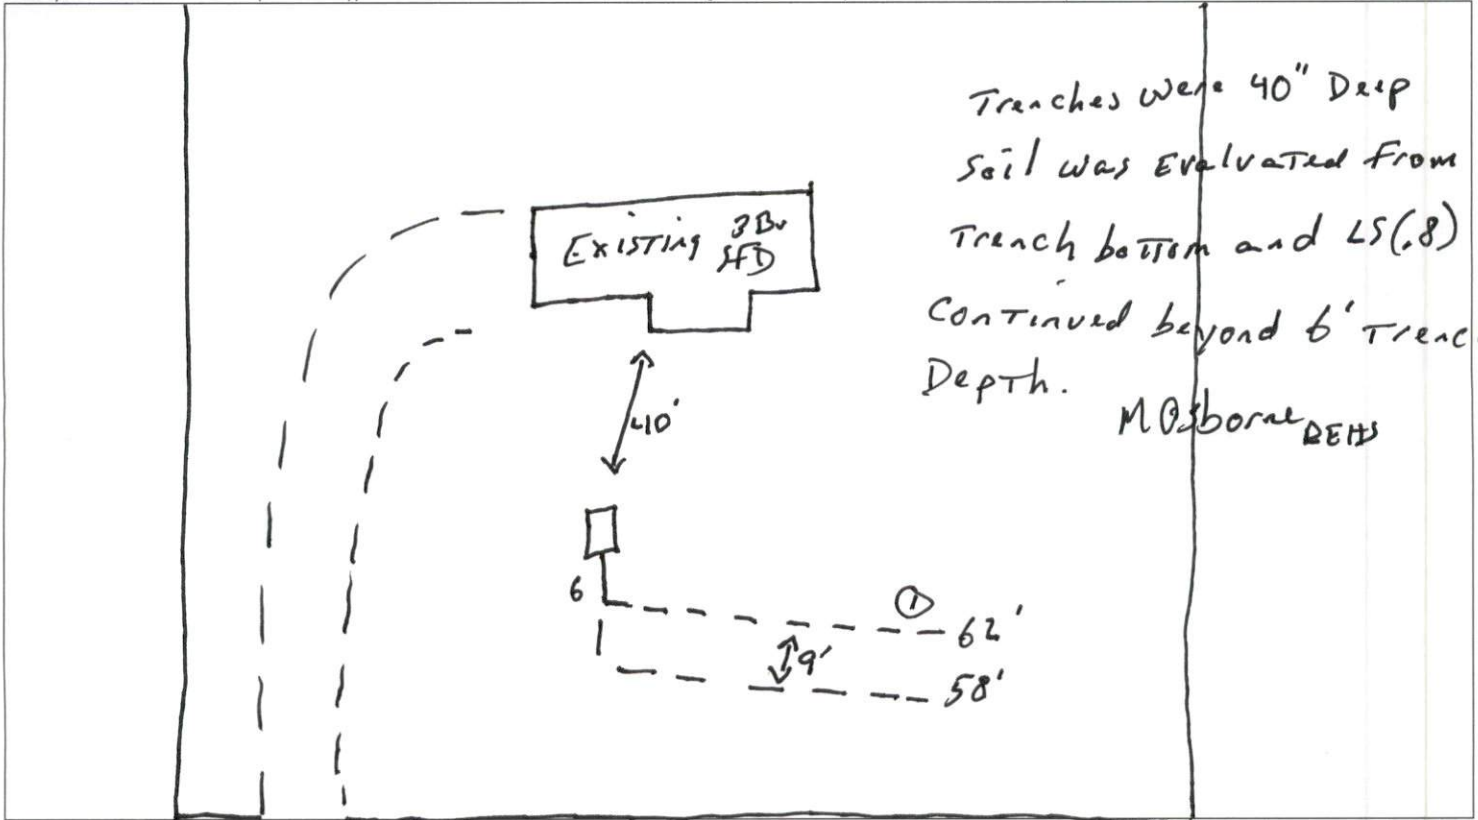 Trenches were 40" Deep
Soil was Evaluated From
Trench bottom and LS(.8)
Continued beyond 6' Trenc
Depth.
M Osborne REHS
Existing 3Br
SFD
40'
6
①
62'
9'
58'